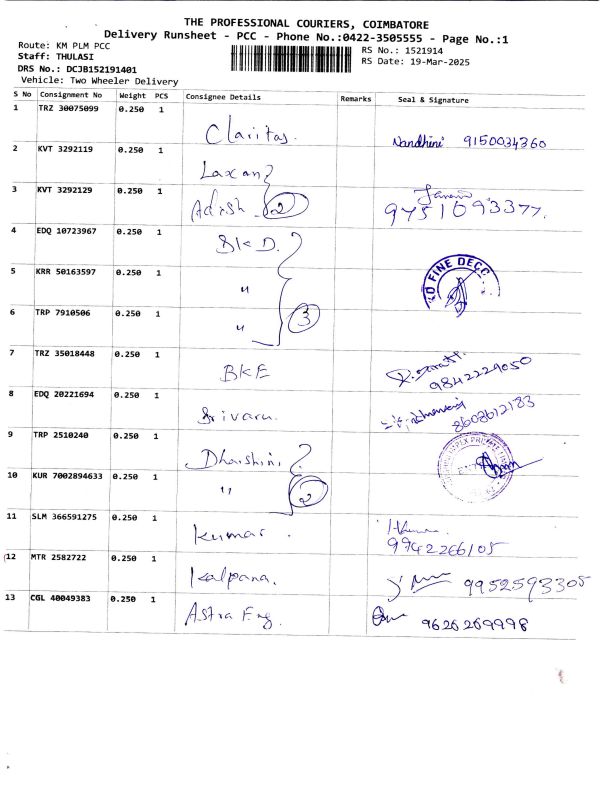 THE PROFESSIONAL COURIERS, COIMBATORE
Delivery Runsheet - PCC - Phone No.:0422-3505555 - Page No.:1
Route: KM PLM PCC
RS No.: 1521914
Staff: THULASI
RS Date: 19-Mar-2025
DRS No.: DCJB152191401
Vehicle: Two Wheeler Delivery
S No Consignment No Weight PCS Consignee Details Remarks Seal & Signature
1 TRZ 30075099 0.250 1 Claritas. Nandhini 9150034360
2 KVT 3292119 0.250 1 Laxan
3 KVT 3292129 0.250 1 Adish 2 9751093377.
4 EDQ 10723967 0.250 1 SKD.
5 KRR 50163597 0.250 1 " FINE DECC
6 TRP 7910506 0.250 1 " 3
7 TRZ 35018448 0.250 1 BKE 9842229050
8 EDQ 20221694 0.250 1 Srivaru. 8608612183
9 TRP 2510240 0.250 1 Dharshini
10 KUR 7002894633 0.250 1 " 2
11 SLM 366591275 0.250 1 Kumar. 9742266105
12 MTR 2582722 0.250 1 Kalpana. 9952593305
13 CGL 40049383 0.250 1 Astra Eng. 9626269998